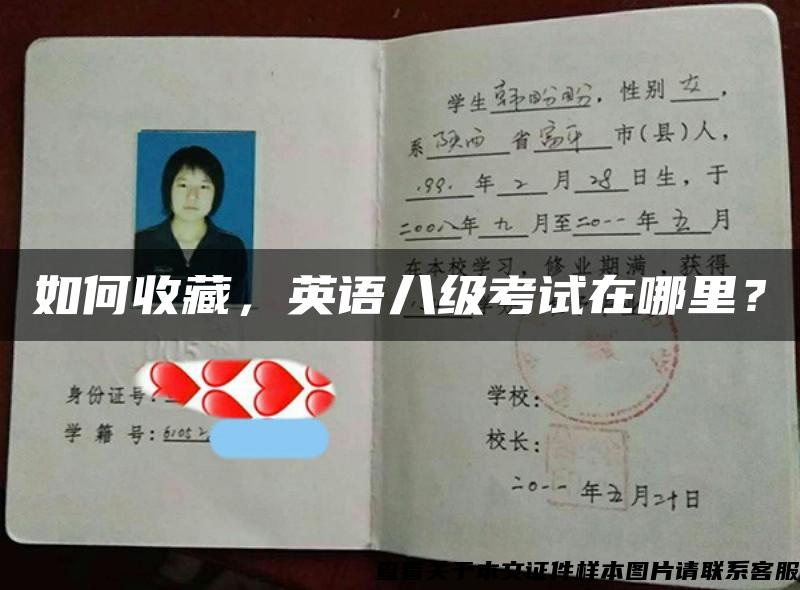 学生韩盼盼，性别女，
系陕西省富平市(县)人，
1991年2月28日生，于
二〇〇八年九月至二〇一一年五月
在本校学习，修业期满，获得
如何收藏，英语八级考试在哪里？
身份证号：
学籍号：6105
学校：
校长：
二〇一一年五月二十日
查看关于本文证件样本图片请联系客服